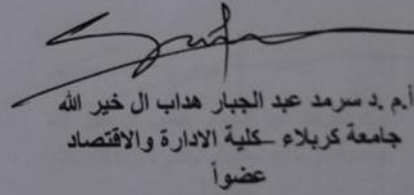 أ.م.د سرمد عبد الجبار هداب ال خير الله
جامعة كربلاء – كلية الادارة والاقتصاد
عضواً